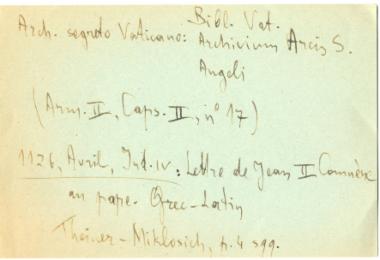 Bibl. Vat.
Arch. segreto Vaticano: Archivium Arcis S.
Angeli
(Arm. II, Caps. II, n° 17)
1126, Avril, Ind. IV: Lettre de Jean II Comnène
au pape. Grec-Latin
Theiner-Miklosich, p. 4 sqq.